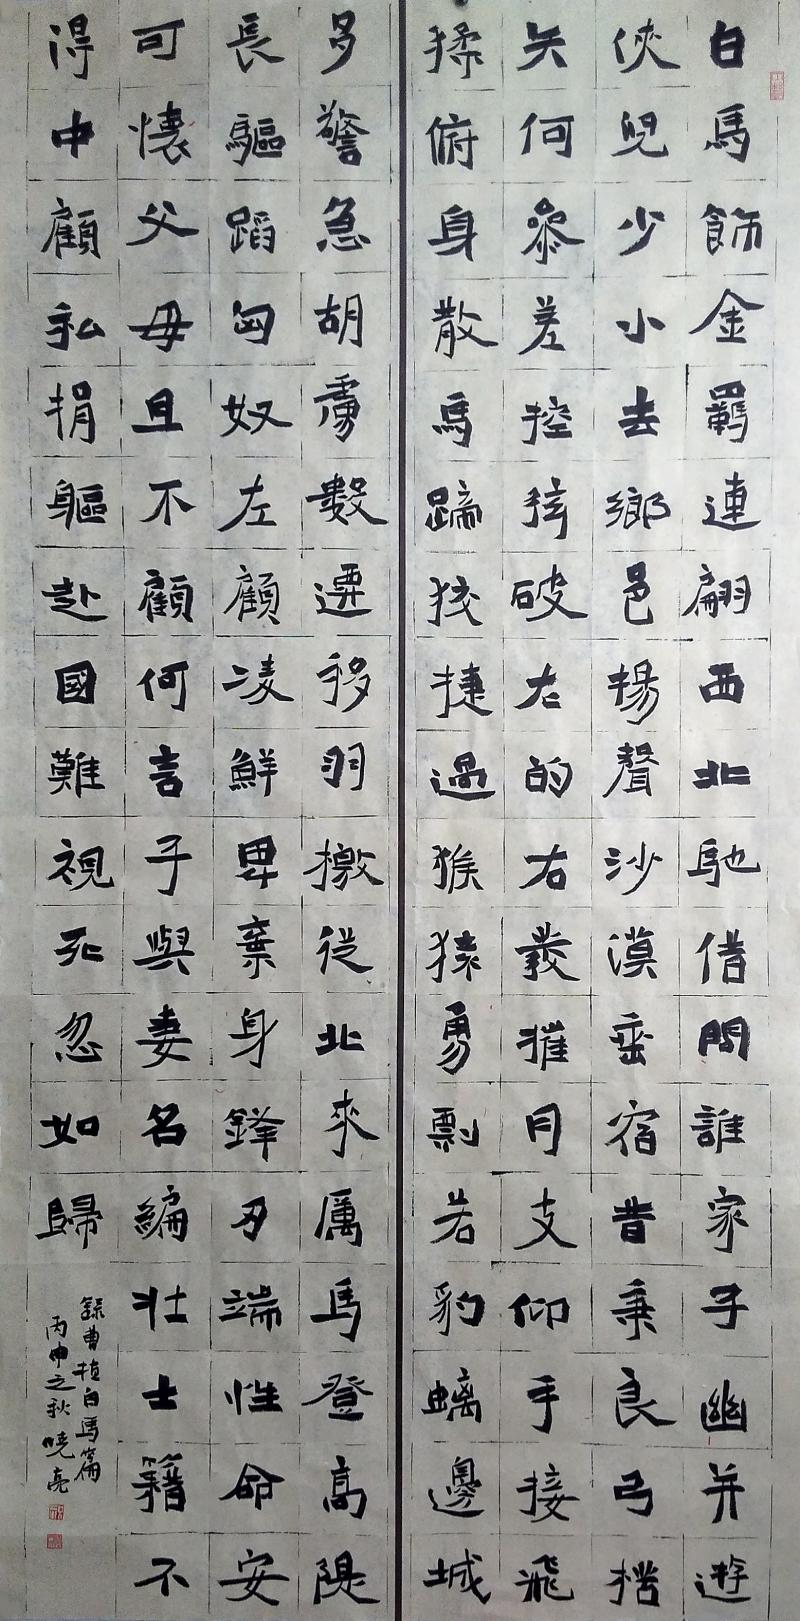 白馬飾金羈連翩西北馳借問誰家子幽并遊
俠兒少小去鄉邑揚聲沙漠垂宿昔秉良弓楛
矢何參差控弦破左的右發摧月支仰手接飛
猱俯身散馬蹄狡捷過猴猿勇剽若豹螭邊城
多警急胡虜數遷移羽檄從北來厲馬登高隄
長驅蹈匈奴左顧凌鮮卑棄身鋒刃端性命安
可懷父母且不顧何言子與妻名編壯士籍不
得中顧私捐軀赴國難視死忽如歸
錄曹植白馬篇
丙申之秋曉亮